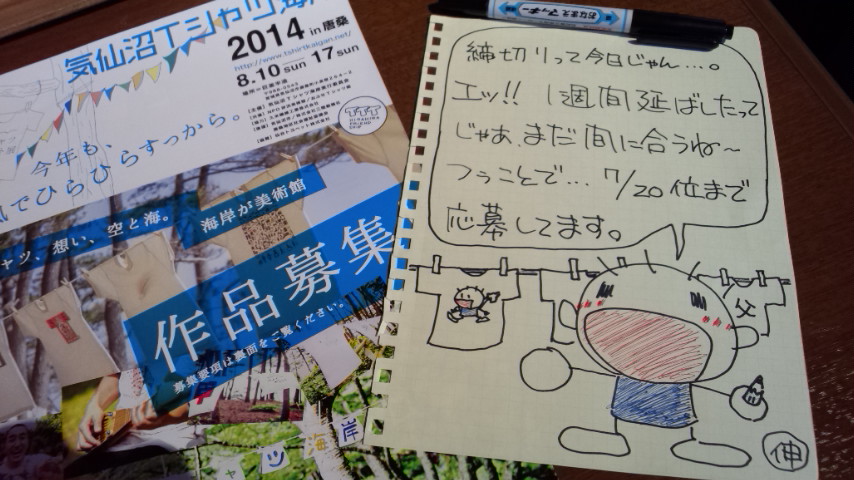 気仙沼Tシャツ海
2014 in 唐桑
http://www.tshirtkaigan.net/
8.10 sun 17 sun
今年も、
でひらひらすっから。
シャツ、想い、空と海。
海岸が美術館
作品募集
募集要項は裏面をご覧ください。
ャツ海岸
おなまえマッキー
締切りって今日じゃん…。
エッ!! 1週間延ばしたって
じゃあ、まだ間に合うね〜
つうことで… 7/20位まで
応募してます。
父
伸